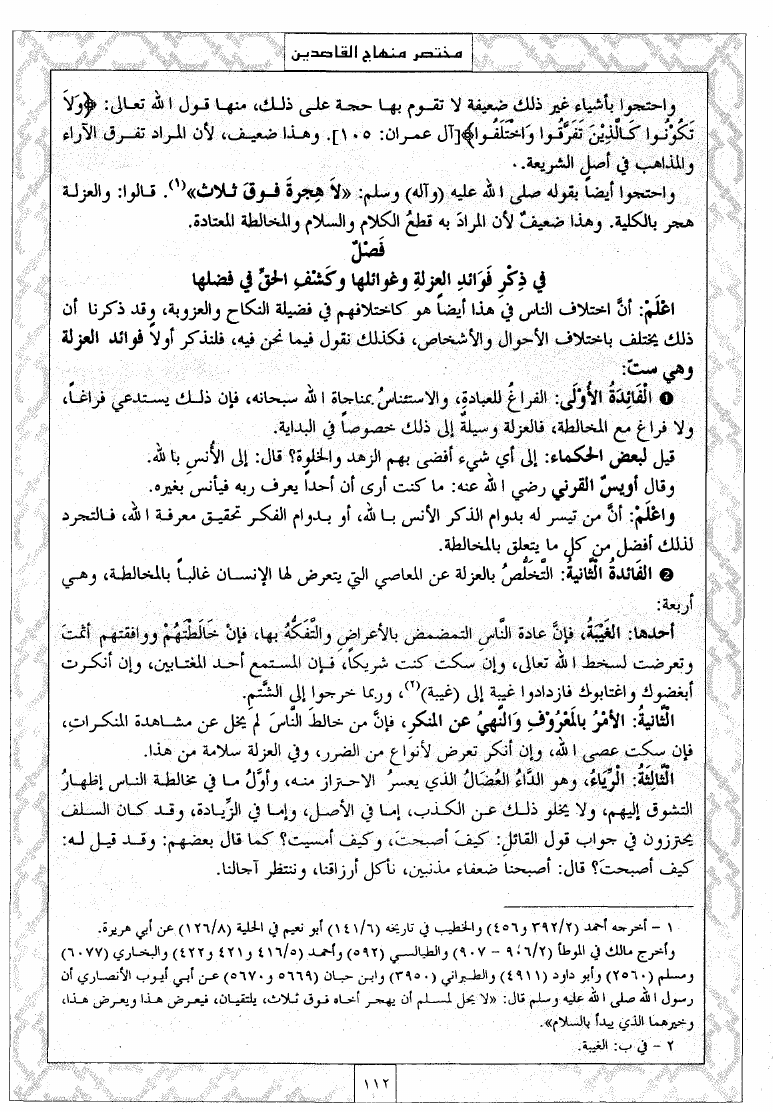 مختصر منهاج القاصدين
واحتجوا بأشياء غير ذلك ضعيفة لا تقوم بها حجة على ذلك، منها قول الله تعالى: ﴿وَلاَ
تَكُوْنُوا كَالَّذِيْنَ تَفَرَّقُوا وَاخْتَلَفُوا﴾[آل عمران: ١٠٥]. وهذا ضعيف، لأن المراد تفرق الآراء
والمذاهب في أصل الشريعة.
واحتجوا أيضاً بقوله صلى الله عليه (وآله) وسلم: «لاَ هِجرةَ فَوقَ ثَلاث»(١). قالوا: والعزلة
هجر بالكلية. وهذا ضعيفٌ لأن المرادَ به قطعُ الكلام والسلام والمخالطة المعتادة.
فَصْلٌ
في ذِكْرِ فَوَائدِ العزلةِ وغوائلها وكَشْفِ الحقِّ في فضلها
اعْلَمْ: أنَّ اختلاف الناس في هذا أيضاً هو كاختلافهم في فضيلة النكاح والعزوبة، وقد ذكرنا أن
ذلك يختلف باختلاف الأحوال والأشخاص، فكذلك نقول فيما نحن فيه، فلنذكر أولاً فوائد العزلة
وهي ستّ:
❶ الْفَائِدَةُ الأُوْلَى: الفراغُ للعبادةِ، والاستئناسُ بمناجاة الله سبحانه، فإن ذلك يستدعي فراغاً،
ولا فراغ مع المخالطة، فالعزلة وسيلةٌ إلى ذلك خصوصاً في البداية.
قيل لبعض الحكماء: إلى أي شيء أفضى بهم الزهد والخلوة؟ قال: إلى الأُنسِ بالله.
وقال أويسٌ القرني رضي الله عنه: ما كنت أرى أن أحداً يعرف ربه فيأنس بغيره.
واعْلَمْ: أنَّ من تيسر له بدوام الذكر الأنس بالله، أو بدوام الفكر تحقيق معرفة الله، فالتجرد
لذلك أفضل من كل ما يتعلق بالمخالطة.
❷ الفَائدةُ الثَّانيةُ: التَّخلُّصُ بالعزلة عن المعاصي التي يتعرض لها الإنسان غالباً بالمخالطة، وهي
أربعة:
أحدها: الغَيْبَةُ، فإنَّ عادة النَّاسِ التمضمض بالأعراضِ والتَّفَكُّهُ بها، فإنْ خَالَطْتَهُمْ ووافقتهم أثمْتَ
وتعرضت لسخط الله تعالى، وإن سكت كنت شريكاً، فإن المستمع أحد المغتابين، وإن أنكرت
أبغضوك واغتابوك فازدادوا غيبة إلى (غيبة)(٢)، وربما خرجوا إلى الشَّتمِ.
الْثَّانيةُ: الأَمْرُ بالمَعْرُوْفِ وَالنَّهيُ عن المنكرِ، فإنَّ من خالطَ النَّاسَ لم يخل عن مشاهدة المنكرات،
فإن سكت عصى الله، وإن أنكر تعرض لأنواع من الضرر، وفي العزلة سلامة من هذا.
الْثَّالِثَةُ: الْرِّيَاءُ، وهو الدَّاءُ العُضَالُ الذي يعسرُ الاحتراز منه، وأوَّلُ ما في مخالطة الناس إظهارُ
التشوق إليهم، ولا يخلو ذلك عن الكذب، إما في الأصل، وإما في الزِّيادة، وقد كان السلف
يحترزون في جواب قول القائلِ: كيفَ أصبحتَ، وكيف أمسيت؟ كما قال بعضهم: وقد قيل له:
كيف أصبحتَ؟ قال: أصبحنا ضعفاء مذنبين، نأكل أرزاقنا، وننتظر آجالنا.
١ - أخرجه أحمد (٣٩٢/٢ و٤٥٦) والخطيب في تاريخه (١٤١/٦) أبو نعيم في الحلية (١٢٦/٨) عن أبي هريرة.
وأخرج مالك في الموطأ (٩٠٦/٢ - ٩٠٧) والطيالسي (٥٩٢) وأحمد (٤١٦/٥ و٤٢١ و٤٢٢) والبخاري (٦٠٧٧)
ومسلم (٢٥٦٠) وأبو داود (٤٩١١) والطبراني (٣٩٥٠) وابن حبان (٥٦٦٩ و٥٦٧٠) عن أبي أيوب الأنصاري أن
رسول الله صلى الله عليه وسلم قال: «لا يحل لمسلم أن يهجر أخاه فوق ثلاث، يلتقيان، فيعرض هذا ويعرض هذا،
وخيرهما الذي يبدأ بالسلام».
٢ - في ب: الغيبة.
١١٢